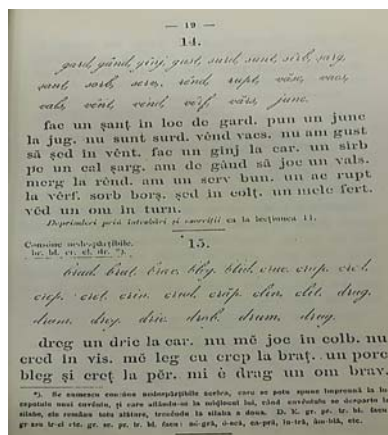 — 19 —
14.
gard, gând, ginj, gust, surd, sunt, sirb, șarg,
șanț, sorb, serv, rênd, rupt, văsc, vacs,
vals, vênt, vend, vêrf, vărs, junc.
fac un șanț in loc de gard. pun un junc
la jug. nu sunt surd. vênd vacs. nu am gust
să șed in vênt. fac un ginj la car. un sirb
pe un cal șarg. am de gând să joc un vals.
merg la rênd. am un serv bun. un ac rupt
la vêrf. sorb borș. șed in colț. un melc fert.
vêd un om in turn.
Deprinderi prin intrebări și exerciții ca la lecțiunea 11.
Consune nedespărțibile.
br. bl. cr. cl. dr. *).
15.
brad, brat, brav, bleg, blid, cruc, crap, cret,
crep, crin, crud, clin, drag,
dram, dreg, dric, drob, drum, drug.
dreg un dric la car. nu mĕ joc in colb. nu
cred in vis. mĕ leg cu crep la braț. un porc
bleg și creț la pĕr. mi e drag un om brav.
*). Se numesc consune nedespărțibile acelea, care se pot spune impreună la in-
ceputul unui cuvêntu, și care aflându-se in mijlocul lui, când cuvêntulu se desparte in
silabe, ele remânu totu alăture, trecêndu la silaba a doua. D. E. gr. pr. tr. bl. facu:
ne-gră, ó-cră, ca-pră, lu-tră, îm-blă, etc.